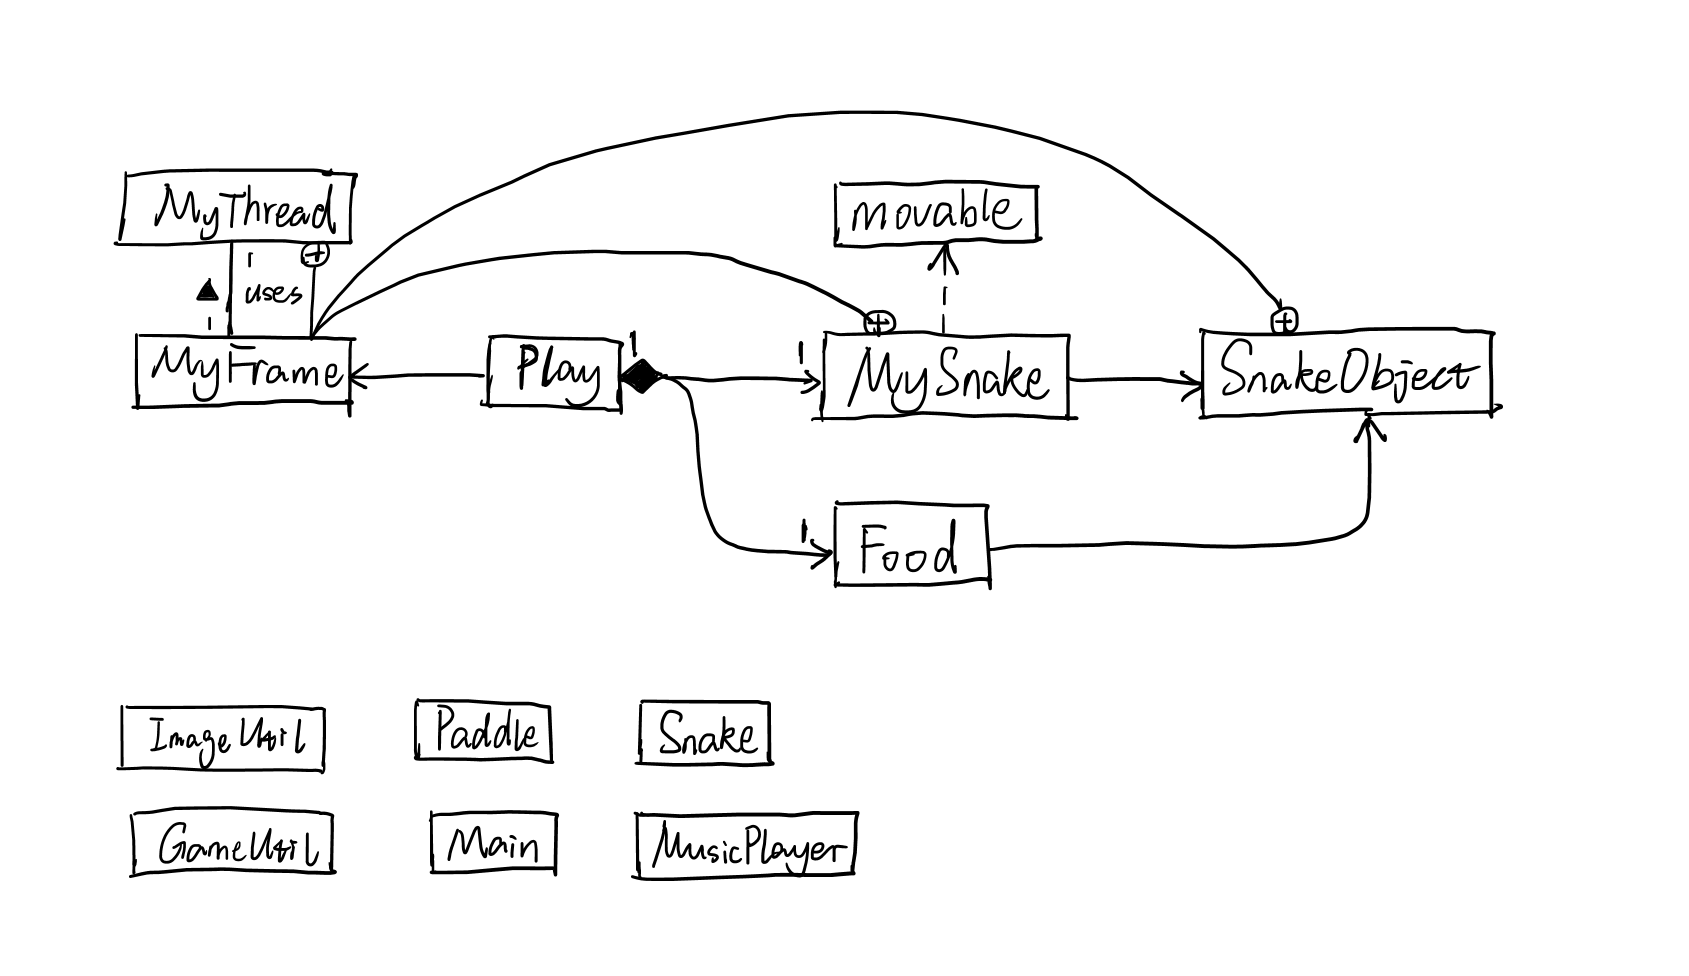 MyThread
movable
1
uses
1
MyFrame
Play
1
1
MySnake
SnakeObject
1
Food
ImageUtil
Paddle
Snake
GameUtil
Main
MusicPlayer